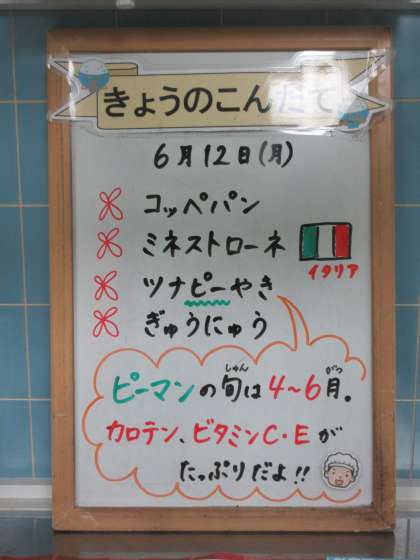 きょうのこんだて
6月12日(月)
コッペパン
ミネストローネ
イタリア
ツナピーやき
ぎゅうにゅう
ピーマンの旬は4~6月。
しゅん がつ
カロテン、ビタミンC・Eが
たっぷりだよ!!